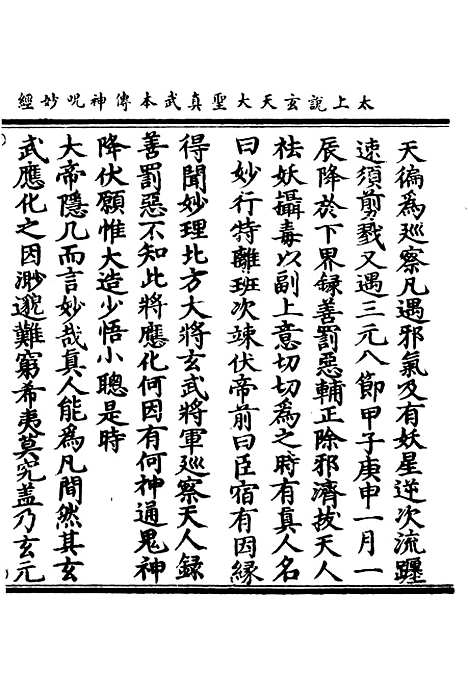 太上說玄天大聖真武本傳神呪妙經
天徧為巡察凡遇邪氣及有妖星逆次流躔
速須剪戮又遇三元八節甲子庚申一月一
辰降於下界録善罰惡輔正除邪濟拔天人
袪妖攝毒以副上意切切為之時有真人名
曰妙行特離班次竦伏帝前曰臣宿有因緣
得聞妙理北方大將玄武將軍巡察天人録
善罰惡不知此將應化何因有何神通鬼神
降伏願惟大造少悟小聰是時
大帝隱几而言妙哉真人能為凡間然其玄
武應化之因渺邈難窮希夷莫究蓋乃玄元